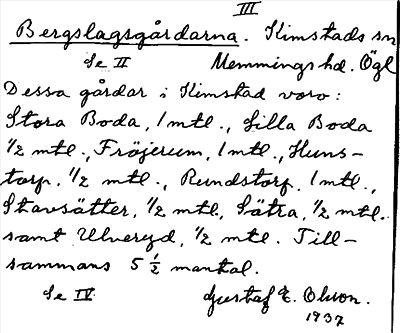 III
Bergslagsgårdarna. Kimstads sn
Se II Memmings hd. Ögl
Dessa gårdar i Kimstad voro:
Stora Boda, 1 mtl., Lilla Boda
1/2 mtl., Fröjerum, 1 mtl., Huns-
torp, 1/2 mtl., Rundstorp, 1 mtl.,
Stavsätter, 1/2 mtl., Sätra, 1/2 mtl.
samt Ulveryd, 1/2 mtl. Till-
sammans 5 1/2 mantal.
Se IV. Gustaf E. Olson.
1937